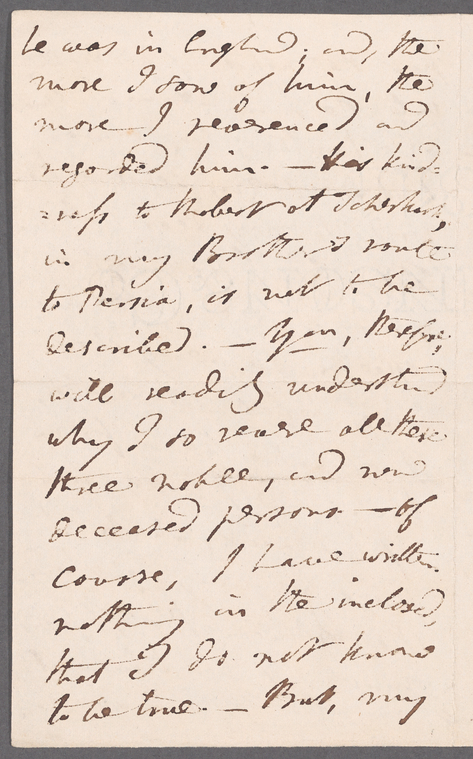 he was in England; and, the
more I saw of him, the
more I reverenced and
regarded him. — His kind=
=ness to Robert at
in my Brother's route
to Persia, is not to be
described. — You, therefore,
will readily understand
why I so revere all these
three noble, and now
deceased persons — of
course, I have written
nothing in the inclosed,
that I do not know
to be true. — But, my